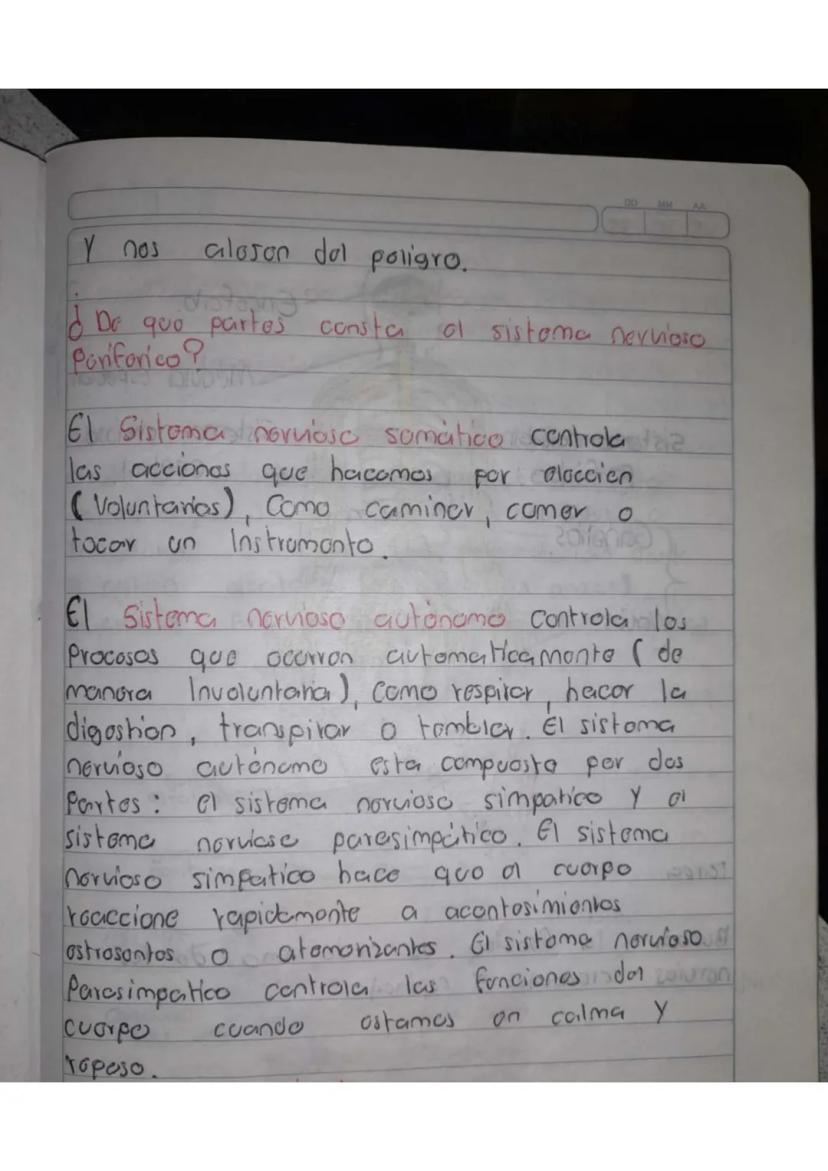 DD MM AA
Y nos alejan del peligro.
¿De que partes consta el sistema nervioso
Periferico?
El Sistema nervioso somático controla
las acciones que hacemos por eleccion
(Voluntarios), Como caminar, comer o
tocar un Instrumento.
El Sistema nervioso autónomo controla los
Procesos que ocurren automaticamente (de
manera Involuntaria), como respirar, hacer la
digestion, transpirar o temblar. El sistema
nervioso autónomo esta compuesto por dos
Partes: el sistema nervioso simpatico y el
sistema nervioso parasimpático. El sistema
nervioso simpatico hace que el cuerpo
reaccione rapidamente a acontesimientos
estresantes o atemorizantes. El sistema nervioso
Parasimpatico controla las funciones del
cuerpo cuando estamos en calma y
reposo.